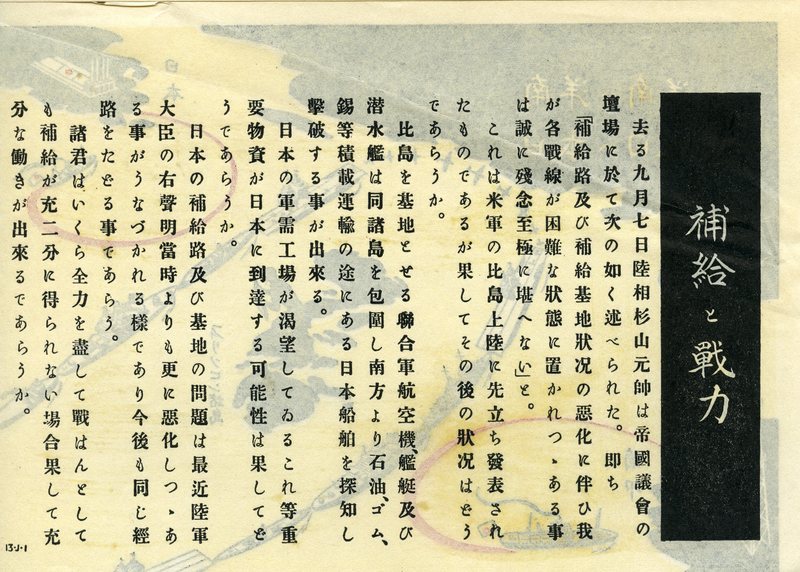 補給と戰力
去る九月七日陸相杉山元帥は帝國議會の
壇場に於て次の如く述べられた。卽ち
「補給路及び補給基地狀況の惡化に伴ひ我
が各戰線が困難な狀態に置かれつゝある事
は誠に殘念至極に堪へない」と。
これは米軍の比島上陸に先立ち發表され
たものであるが果してその後の狀況はどう
であらうか。
比島を基地とせる聯合軍航空機、艦艇及び
潜水艦は同諸島を包圍し南方より石油、ゴム、
錫等積載運輸の途にある日本船舶を探知し
擊破する事が出來る。
日本の軍需工場が渴望してゐるこれ等重
要物資が日本に到達する可能性は果してど
うであらうか。
日本の補給路及び基地の問題は最近陸軍
大臣の右聲明當時よりも更に惡化しつゝあ
る事がうなづかれる樣であり今後も同じ經
路をたどる事であらう。
諸君はいくら全力を盡して戰はんとして
も補給が充二分に得られない場合果して充
分な働きが出來るであらうか。
13-J-1
日本